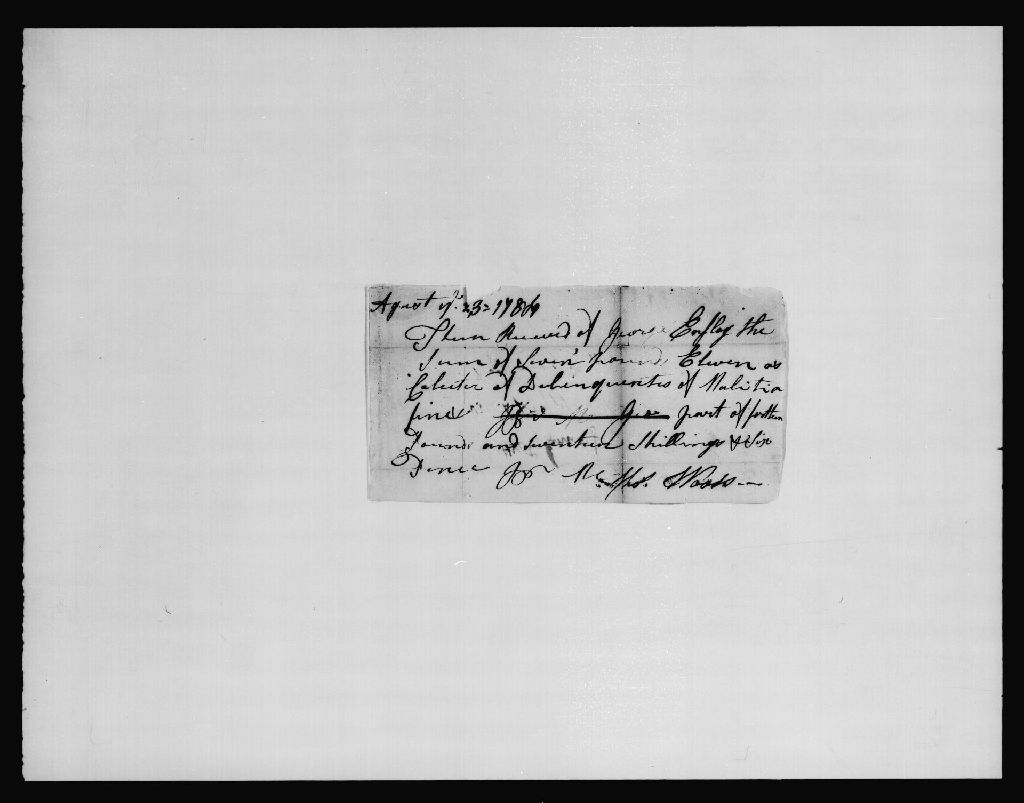 Agust ye. 23= 1786
Then Receved of George Eagley the
Sume of Seven pounds Eleven as
Colector of Delinquenties of Malitia
fines part of forthteen
Pounds and Seventeen Shillings & Six
Pence Pr Me Jos. Woods